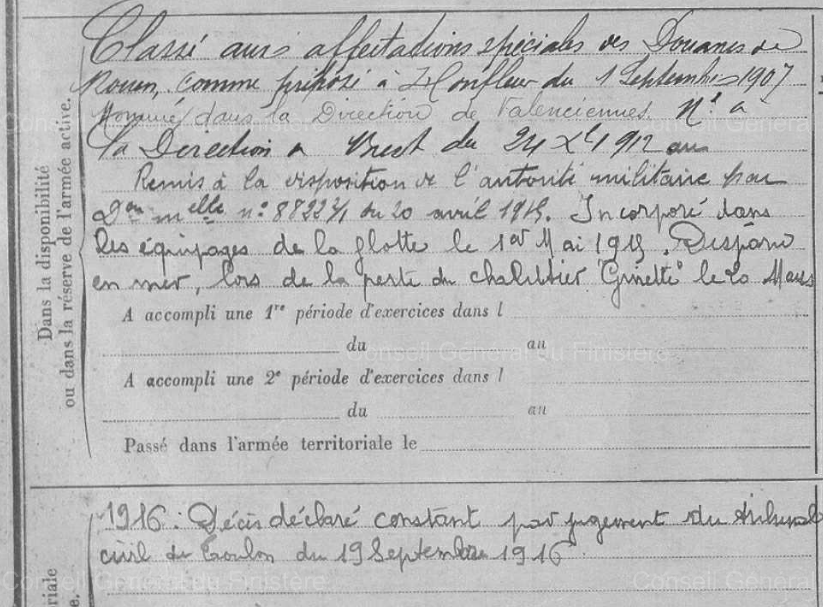 Classé aux affectations spéciales des Douanes de
Rouen, comme préposé à Honfleur du 1 Septembre 1907
Nommé dans la Direction de Valenciennes. N.é à
la Direction à Brest du 24 Xbre 1912 au
Remis à la disposition de l'autorité militaire par
Don melle n° 8822 3/1 du 20 avril 1915. Incorporé dans
les équipages de la flotte le 1er Mai 1915. Disparu
en mer, lors de la perte du chalutier "Ginette" le 20 Mars
A accompli une 1re période d'exercices dans l
du au
A accompli une 2e période d'exercices dans l
du au
Passé dans l'armée territoriale le
1916. Décès déclaré constant par jugement du tribunal
civil de Toulon du 19 Septembre 1916
Dans la disponibilité
ou dans la réserve de l'armée active.
riale
e.
Conseil Général du Finistère
Conseil Général du Finistère
Conseil Généra